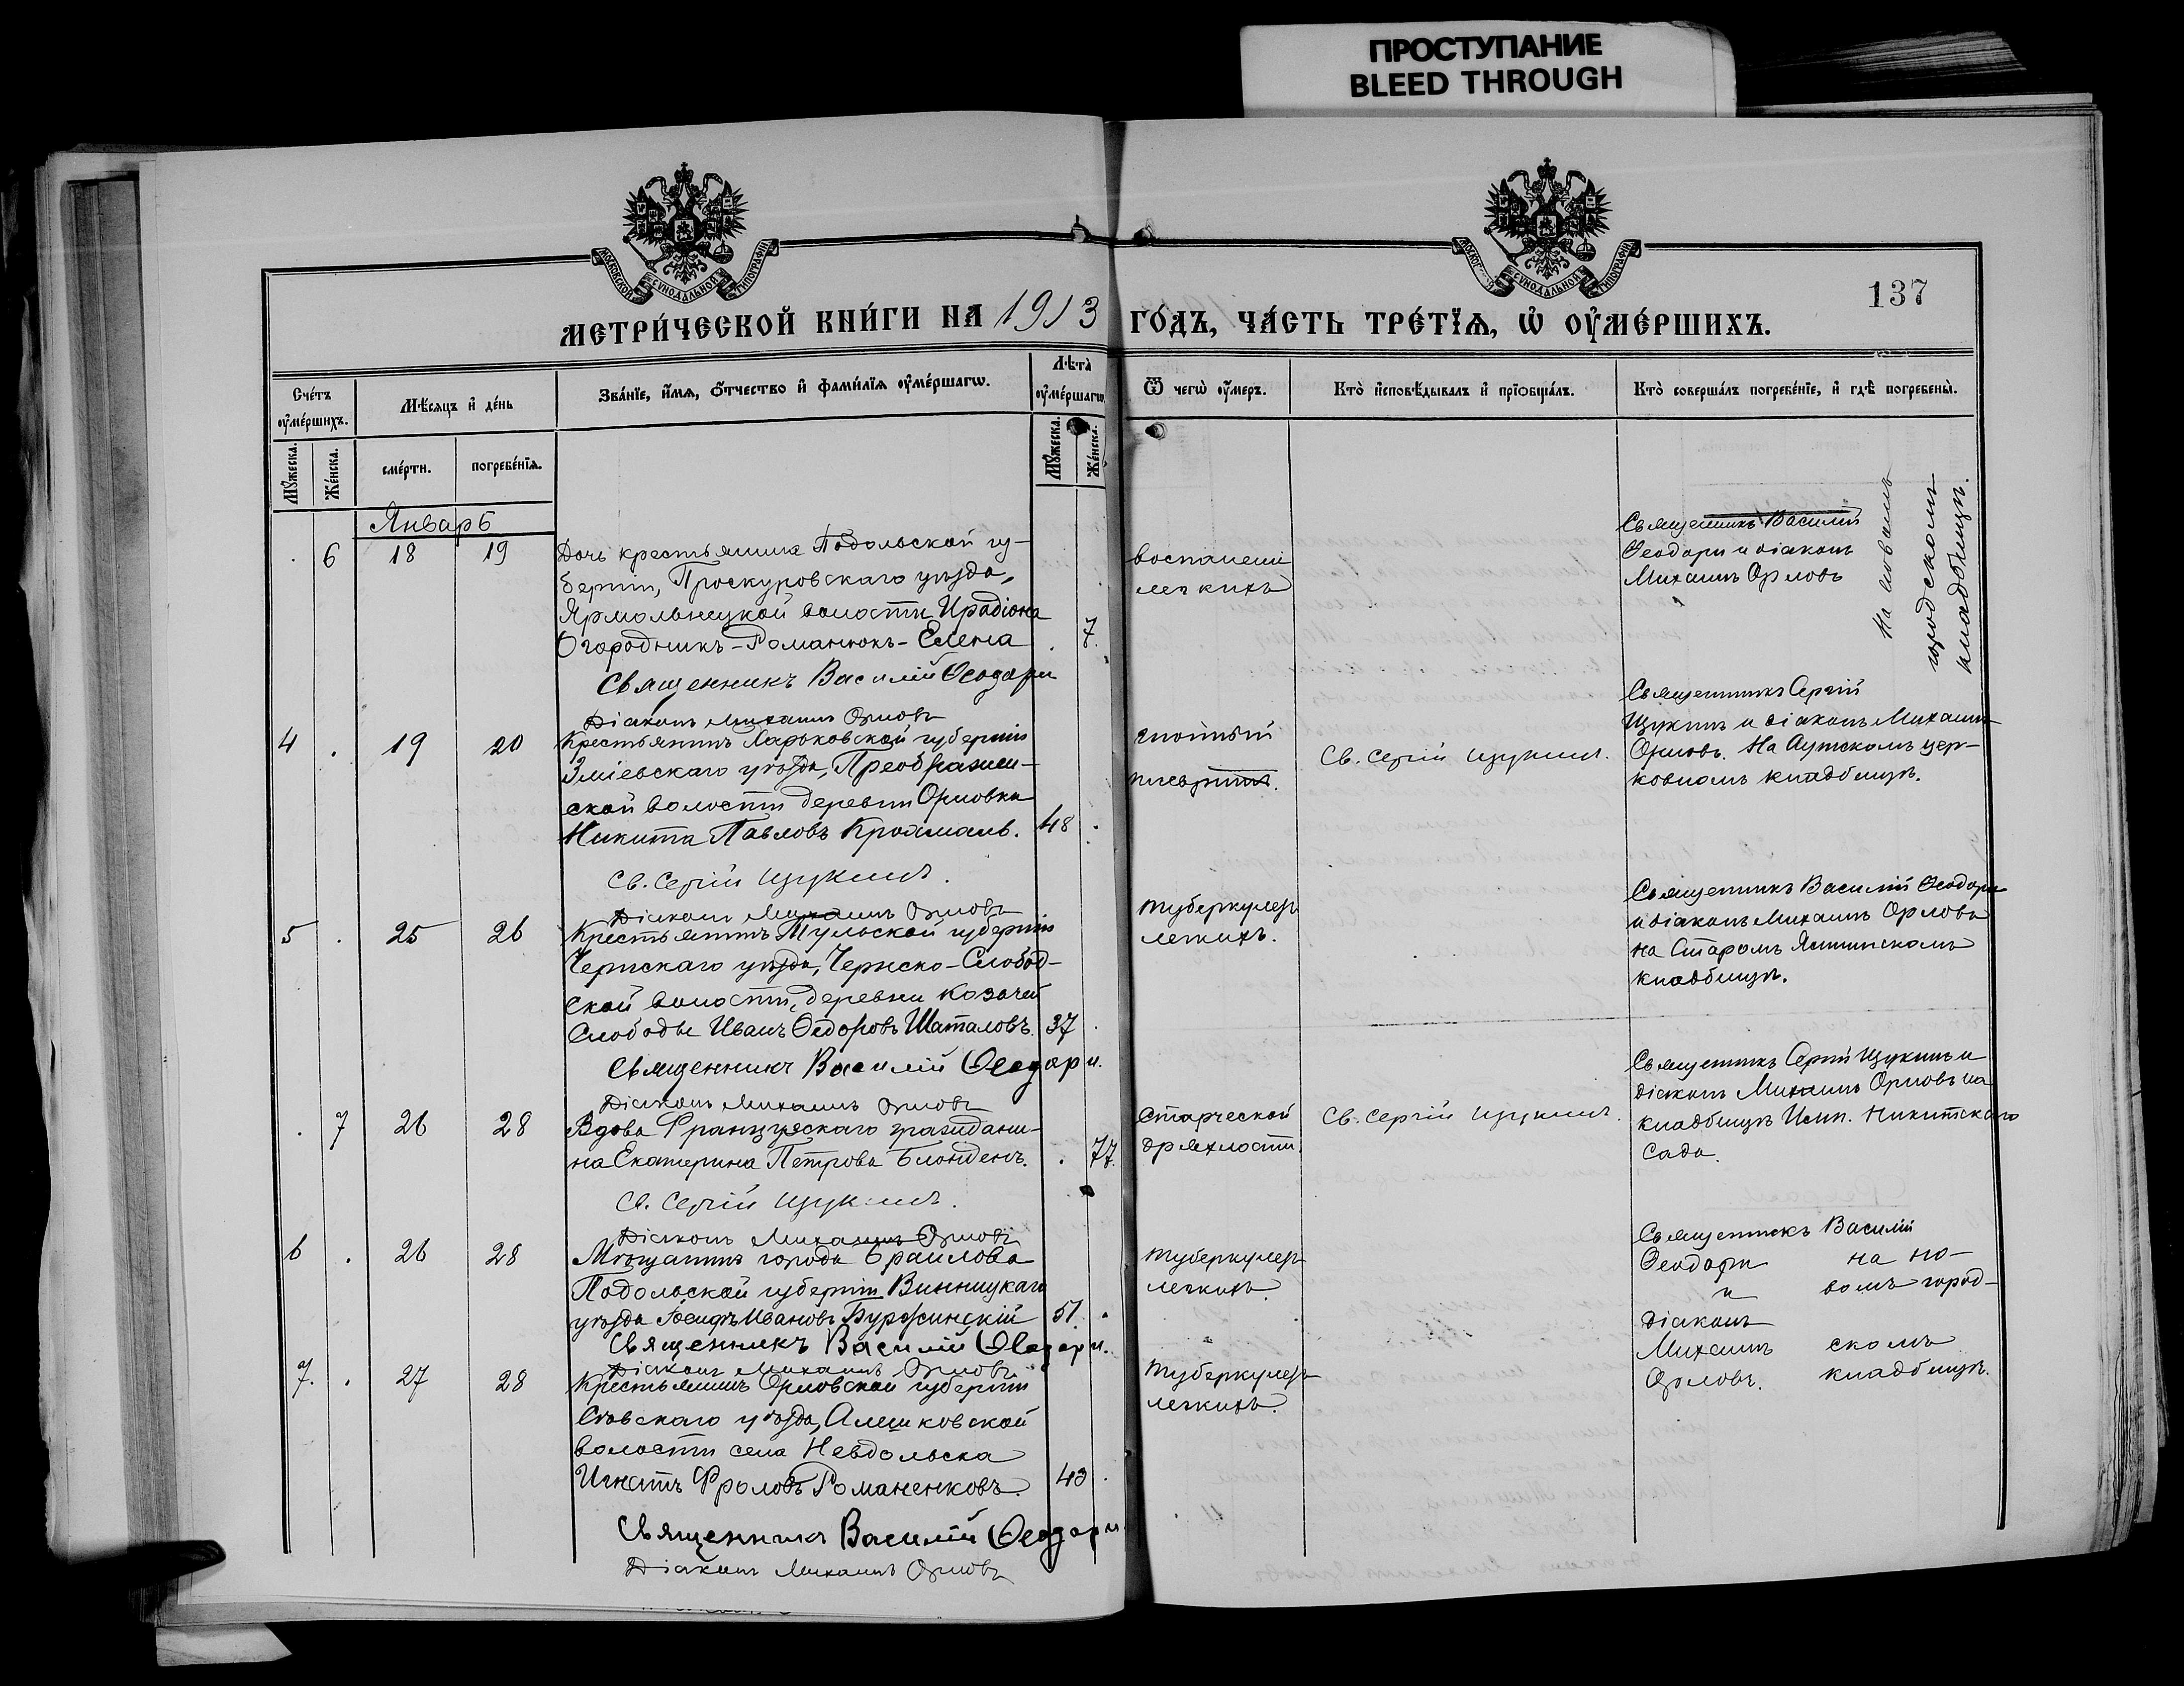 ПРОСТУПАНИЕ
BLEED THROUGH
137
МЕТРИ́ЧЕСКОЙ КНИ́ГИ НА 1913 ГО́ДЪ, ЧА́СТЬ ТРЕ́ТЇѦ, Ѡ҆ ОУ҆МЕ́РШИХЪ.
Сче́тъ оу҆ме́ршихъ.
Мѣ́сяцъ и҆ де́нь
Зва́нїе, и҆́мѧ, ѻ҆́тчество и҆ фами́лїѧ оу҆ме́ршагѡ.
Лѣ́та оу҆ме́ршагѡ.
Ѿ чегѡ̀ оу҆́меръ.
Кто̀ и҆сповѣ́дывалъ и҆ прїѻбща́лъ.
Кто̀ соверша́лъ погребе́нїе, и҆ гдѣ̀ погребены̀.
Мꙋ́жеска.
Же́нска.
сме́рти.
погребе́нїѧ.
Мꙋ́жеска.
Же́нска.
Январь
6
18
19
Дочь крестьянина Подольской гу-
берніи, Проскуровскаго уѣзда,
Ярмольнецкой волости Ирадіона
Огородникъ-Романюкъ-Елена
7.
Священникъ Василій Ѳеодори
Діаконъ Михаилъ Орловъ
воспаленіе
легкихъ
Священникъ Василій
Ѳеодори и діаконъ
Михаилъ Орловъ
На новомъ
городскомъ
кладбищѣ.
4
19
20
Крестьянинъ Харьковской губерніи
Зміевскаго уѣзда, Преображен-
ской волости деревни Орловки
Никита Павловъ Крохмаль.
48
Св. Сергій Щукинъ.
Діаконъ Михаилъ Орловъ
гнойный
плевритъ.
Св. Сергій Щукинъ.
Священникъ Сергій
Щукинъ и діаконъ Михаилъ
Орловъ. На Аутскомъ цер-
ковномъ кладбищѣ.
5
25
26
Крестьянинъ Тульской губерніи
Чернскаго уѣзда, Чернско-Слобод-
ской волости, деревни Козачей
Слободы Иванъ Ѳедоровъ Шаталовъ.
37
Священникъ Василій Ѳеодори.
Діаконъ Михаилъ Орловъ
туберкулезъ
легкихъ.
Священникъ Василій Ѳеодори
и діаконъ Михаилъ Орловъ
на Старомъ Ялтинскомъ
кладбищѣ.
7
26
28
Вдова Французскаго гражда­ни-
на Екатерина Петрова Блонденъ.
77.
Св. Сергій Щукинъ.
Діаконъ Михаилъ Орловъ
Старческой
дряхлости.
Св. Сергій Щукинъ.
Священникъ Сергій Щукинъ и
діаконъ Михаилъ Орловъ на
кладбищѣ Имп. Никитскаго
Сада.
6
26
28
Мѣщанинъ города Браилова
Подольской губерніи Винницкаго
уѣзда Іосифъ Ивановъ Буржинскій
51.
Священникъ Василій Ѳеодори.
Діаконъ Михаилъ Орловъ
туберкулезъ
легкихъ.
Священникъ Василій
Ѳеодори
и
діаконъ
Михаилъ
Орловъ.
на но-
вомъ город-
скомъ
кладбищѣ.
7.
27
28
Крестьянинъ Орловской губерніи
Сѣвскаго уѣзда, Алешковской
волости села Невдольска
Игнатъ Фроловъ Романенковъ.
43
Священникъ Василій Ѳеодори
Діаконъ Михаилъ Орловъ
туберкулезъ
легкихъ.